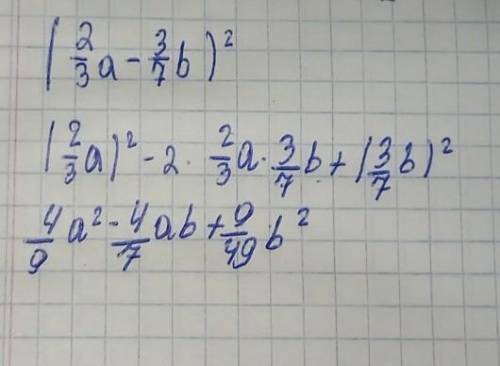 (2/3 a - 3/7 b)²
(2/3 a)² - 2 · 2/3 a · 3/7 b + (3/7 b)²
4/9 a² - 4/7 ab + 9/49 b²